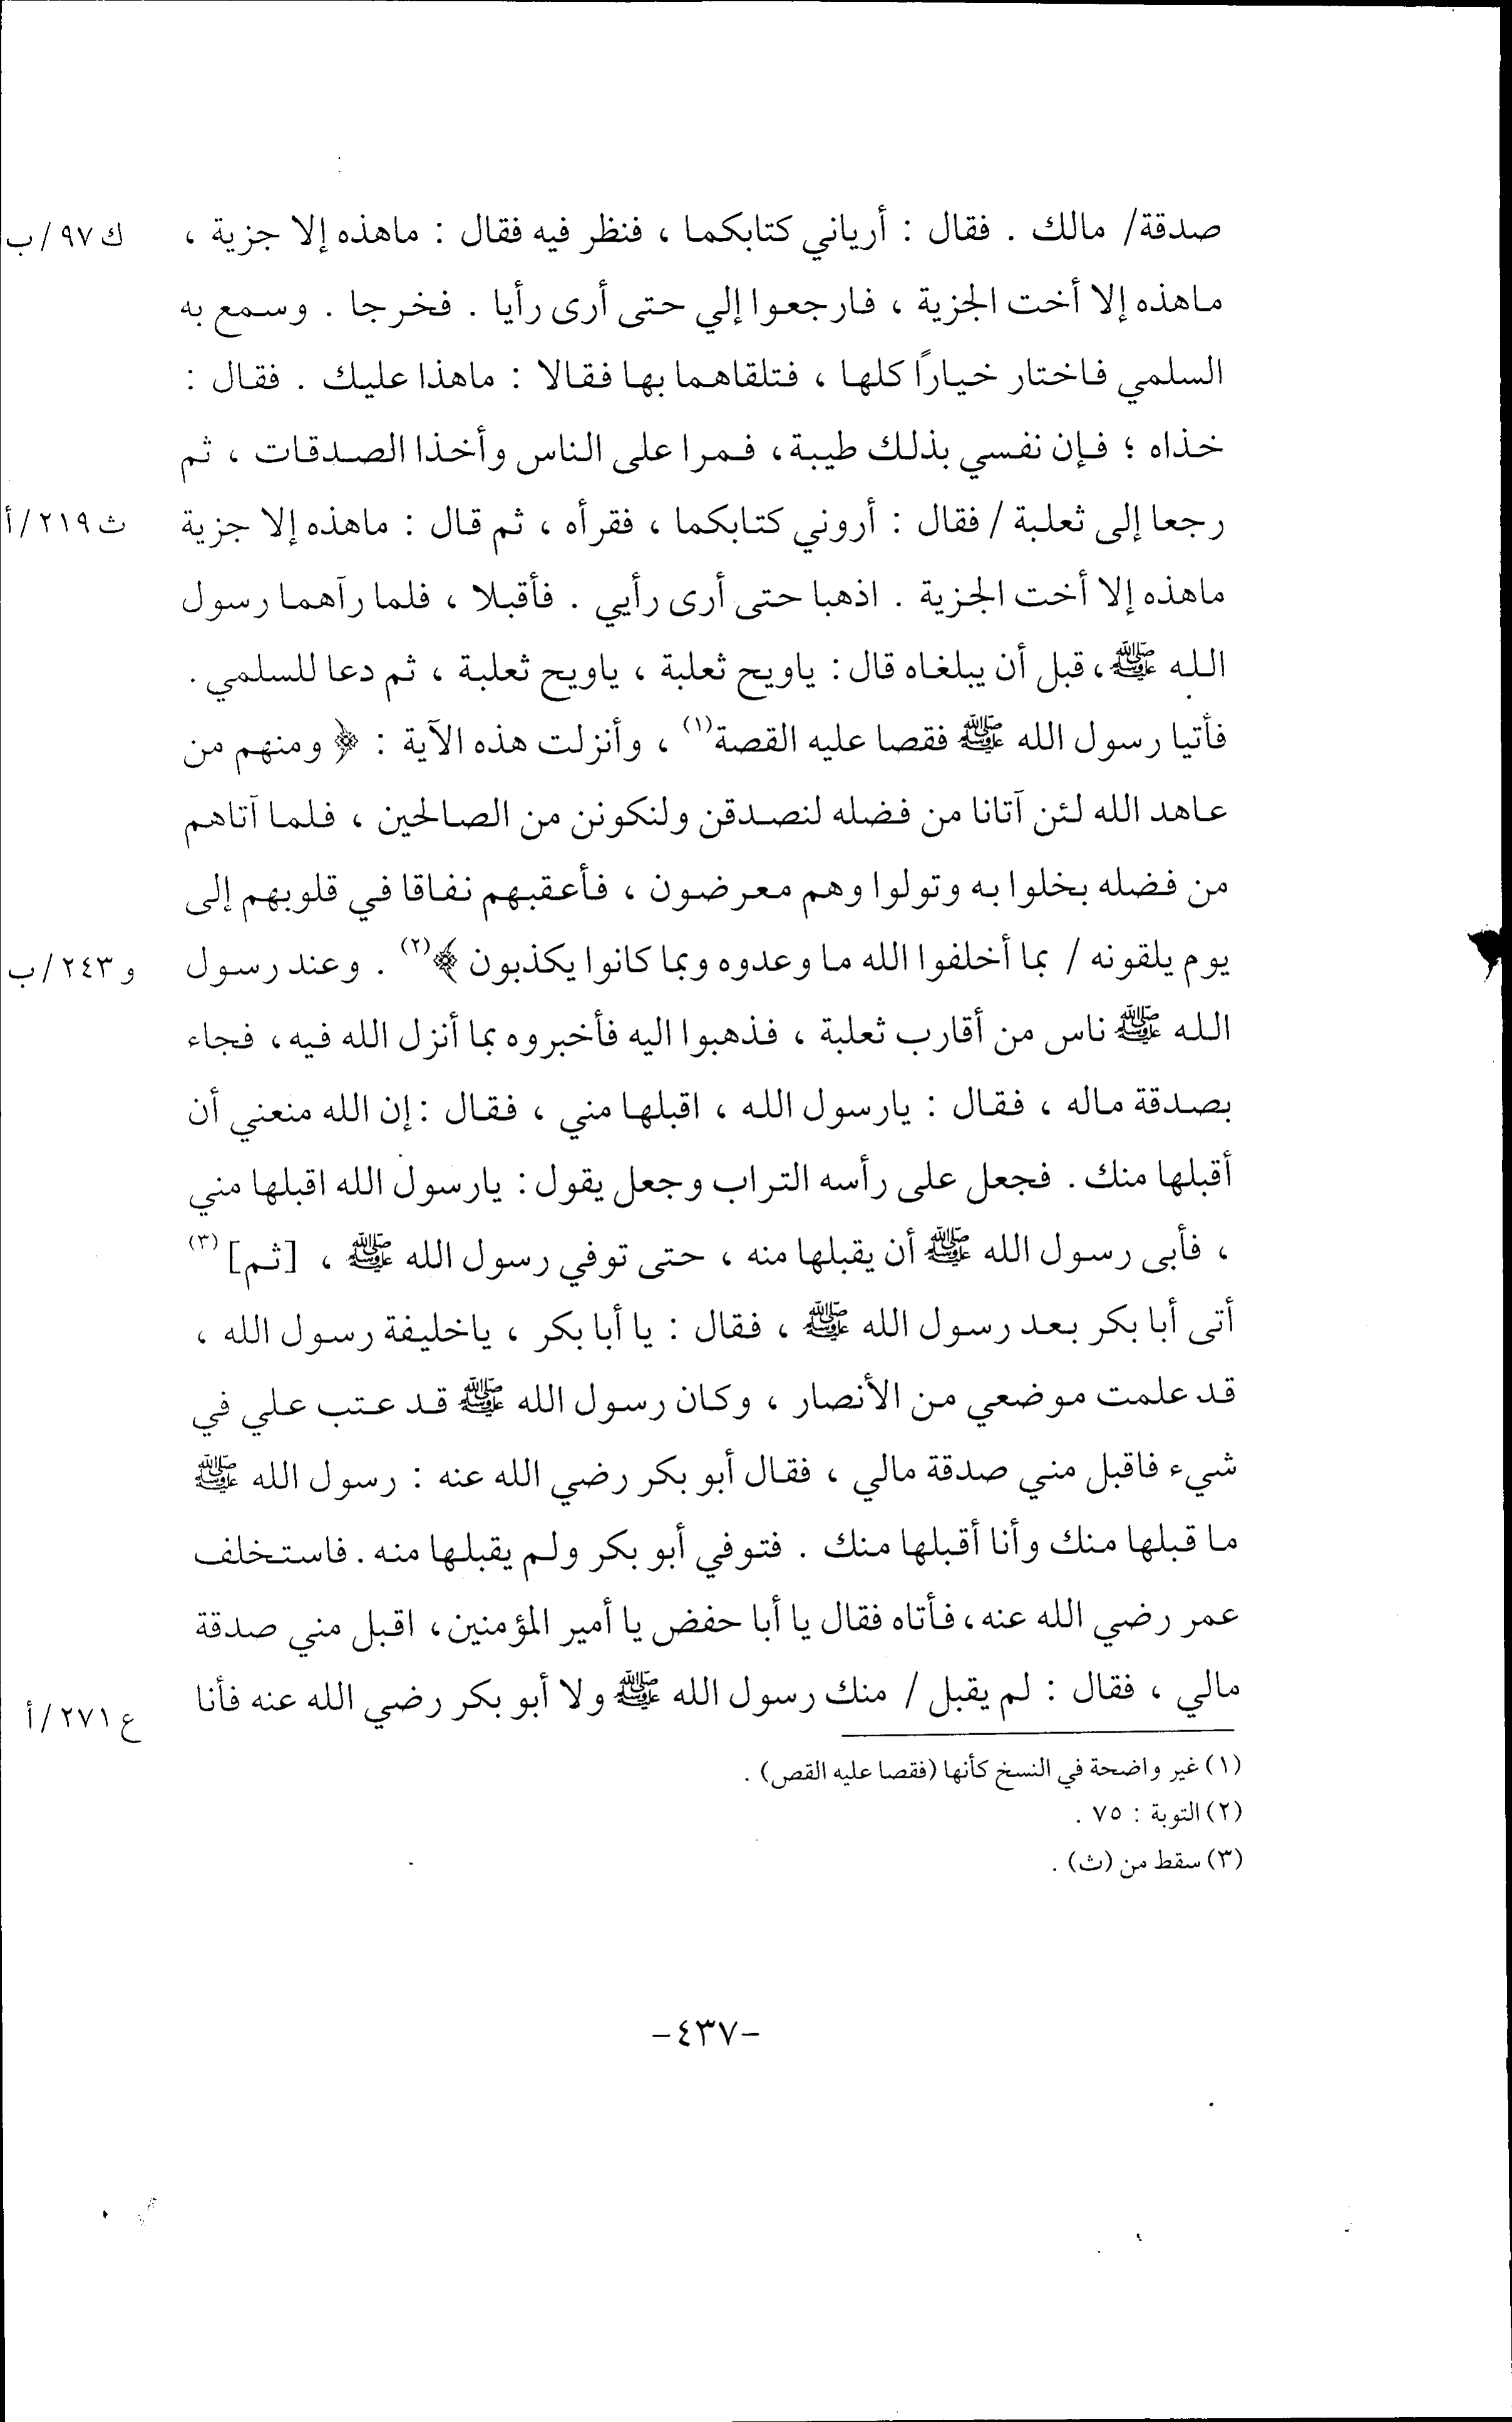 صدقة/ مالك . فقال : أرياني كتابكما ، فنظر فيه فقال : ماهذه إلا جزية ،
ك ٩٧ /ب
ماهذه إلا أخت الجزية ، فارجعوا إلي حتى أرى رأيا . فخرجا . وسمع به
السلمي فاختار خياراً كلها ، فتلقاهما بها فقالا : ماهذا عليك . فقال :
خذاه ؛ فإن نفسي بذلك طيبة ، فمرا على الناس وأخذا الصدقات ، ثم
رجعا إلى ثعلبة / فقال : أروني كتابكما ، فقرأه ، ثم قال : ماهذه إلا جزية
ث ٢١٩ /أ
ماهذه إلا أخت الجزية . اذهبا حتى أرى رأيي . فأقبلا ، فلما رآهما رسول
الله ﷺ ، قبل أن يبلغاه قال : ياويح ثعلبة ، ياويح ثعلبة ، ثم دعا للسلمي .
فأتيا رسول الله ﷺ فقصا عليه القصة(١) ، وأنزلت هذه الآية : ﴿ ومنهم من
عاهد الله لئن آتانا من فضله لنصدقن ولنكونن من الصالحين ، فلما آتاهم
من فضله بخلوا به وتولوا وهم معرضون ، فأعقبهم نفاقا في قلوبهم إلى
يوم يلقونه / بما أخلفوا الله ما وعدوه وبما كانوا يكذبون ﴾(٢) . وعند رسول
و ٢٤٣ /ب
الله ﷺ ناس من أقارب ثعلبة ، فذهبوا اليه فأخبروه بما أنزل الله فيه ، فجاء
بصدقة ماله ، فقال : يارسول الله ، اقبلها مني ، فقال : إن الله منعني أن
أقبلها منك . فجعل على رأسه التراب وجعل يقول : يارسول الله اقبلها مني
، فأبى رسول الله ﷺ أن يقبلها منه ، حتى توفي رسول الله ﷺ ، [ثم](٣)
أتى أبا بكر بعد رسول الله ﷺ ، فقال : يا أبا بكر ، ياخليفة رسول الله ،
قد علمت موضعي من الأنصار ، وكان رسول الله ﷺ قد عتب علي في
شيء فاقبل مني صدقة مالي ، فقال أبو بكر رضي الله عنه : رسول الله ﷺ
ما قبلها منك وأنا أقبلها منك . فتوفي أبو بكر ولم يقبلها منه . فاستخلف
عمر رضي الله عنه ، فأتاه فقال يا أبا حفض يا أمير المؤمنين ، اقبل مني صدقة
مالي ، فقال : لم يقبل / منك رسول الله ﷺ ولا أبو بكر رضي الله عنه فأنا
ع ٢٧١ /أ
(١) غير واضحة في النسخ كأنها (فقصا عليه القص) .
(٢) التوبة : ٧٥ .
(٣) سقط من (ث) .
-٤٣٧-